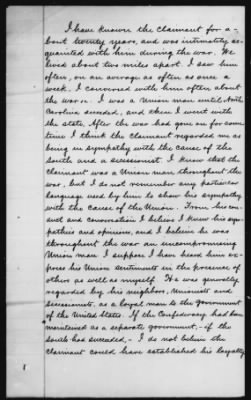 I have known the claimant for a-
bout twenty years, and was intimately ac-
quainted with him during the war. We
lived about two miles apart. I saw him
often, on an average as often as once a
week. I conversed with him often about
the war. I was a Union man until North
Carolina seceded, and then I went with
the state. After the war had gone on for some
time I think the claimant regarded me as
being in sympathy with the cause of the
South and a secessionist. I know that the
claimant was a Union man throughout the
war, but I do not remember any particular
language used by him to show his sympathy
with the cause of the Union. From his con-
duct and conversation I believe I knew his sym-
pathies and opinions, and I believe he was
throughout the war an uncompromising
Union man. I suppose I have heard him ex-
press his Union sentiments in the presence of
others as well as myself. He was generally
regarded by his neighbors, Unionists and
secessionists, as a loyal man to the government
of the United States. If the Confederacy had been
maintained as a separate government,- if the
South had succeeded,- I do not believe the
claimant could have established his loyalty